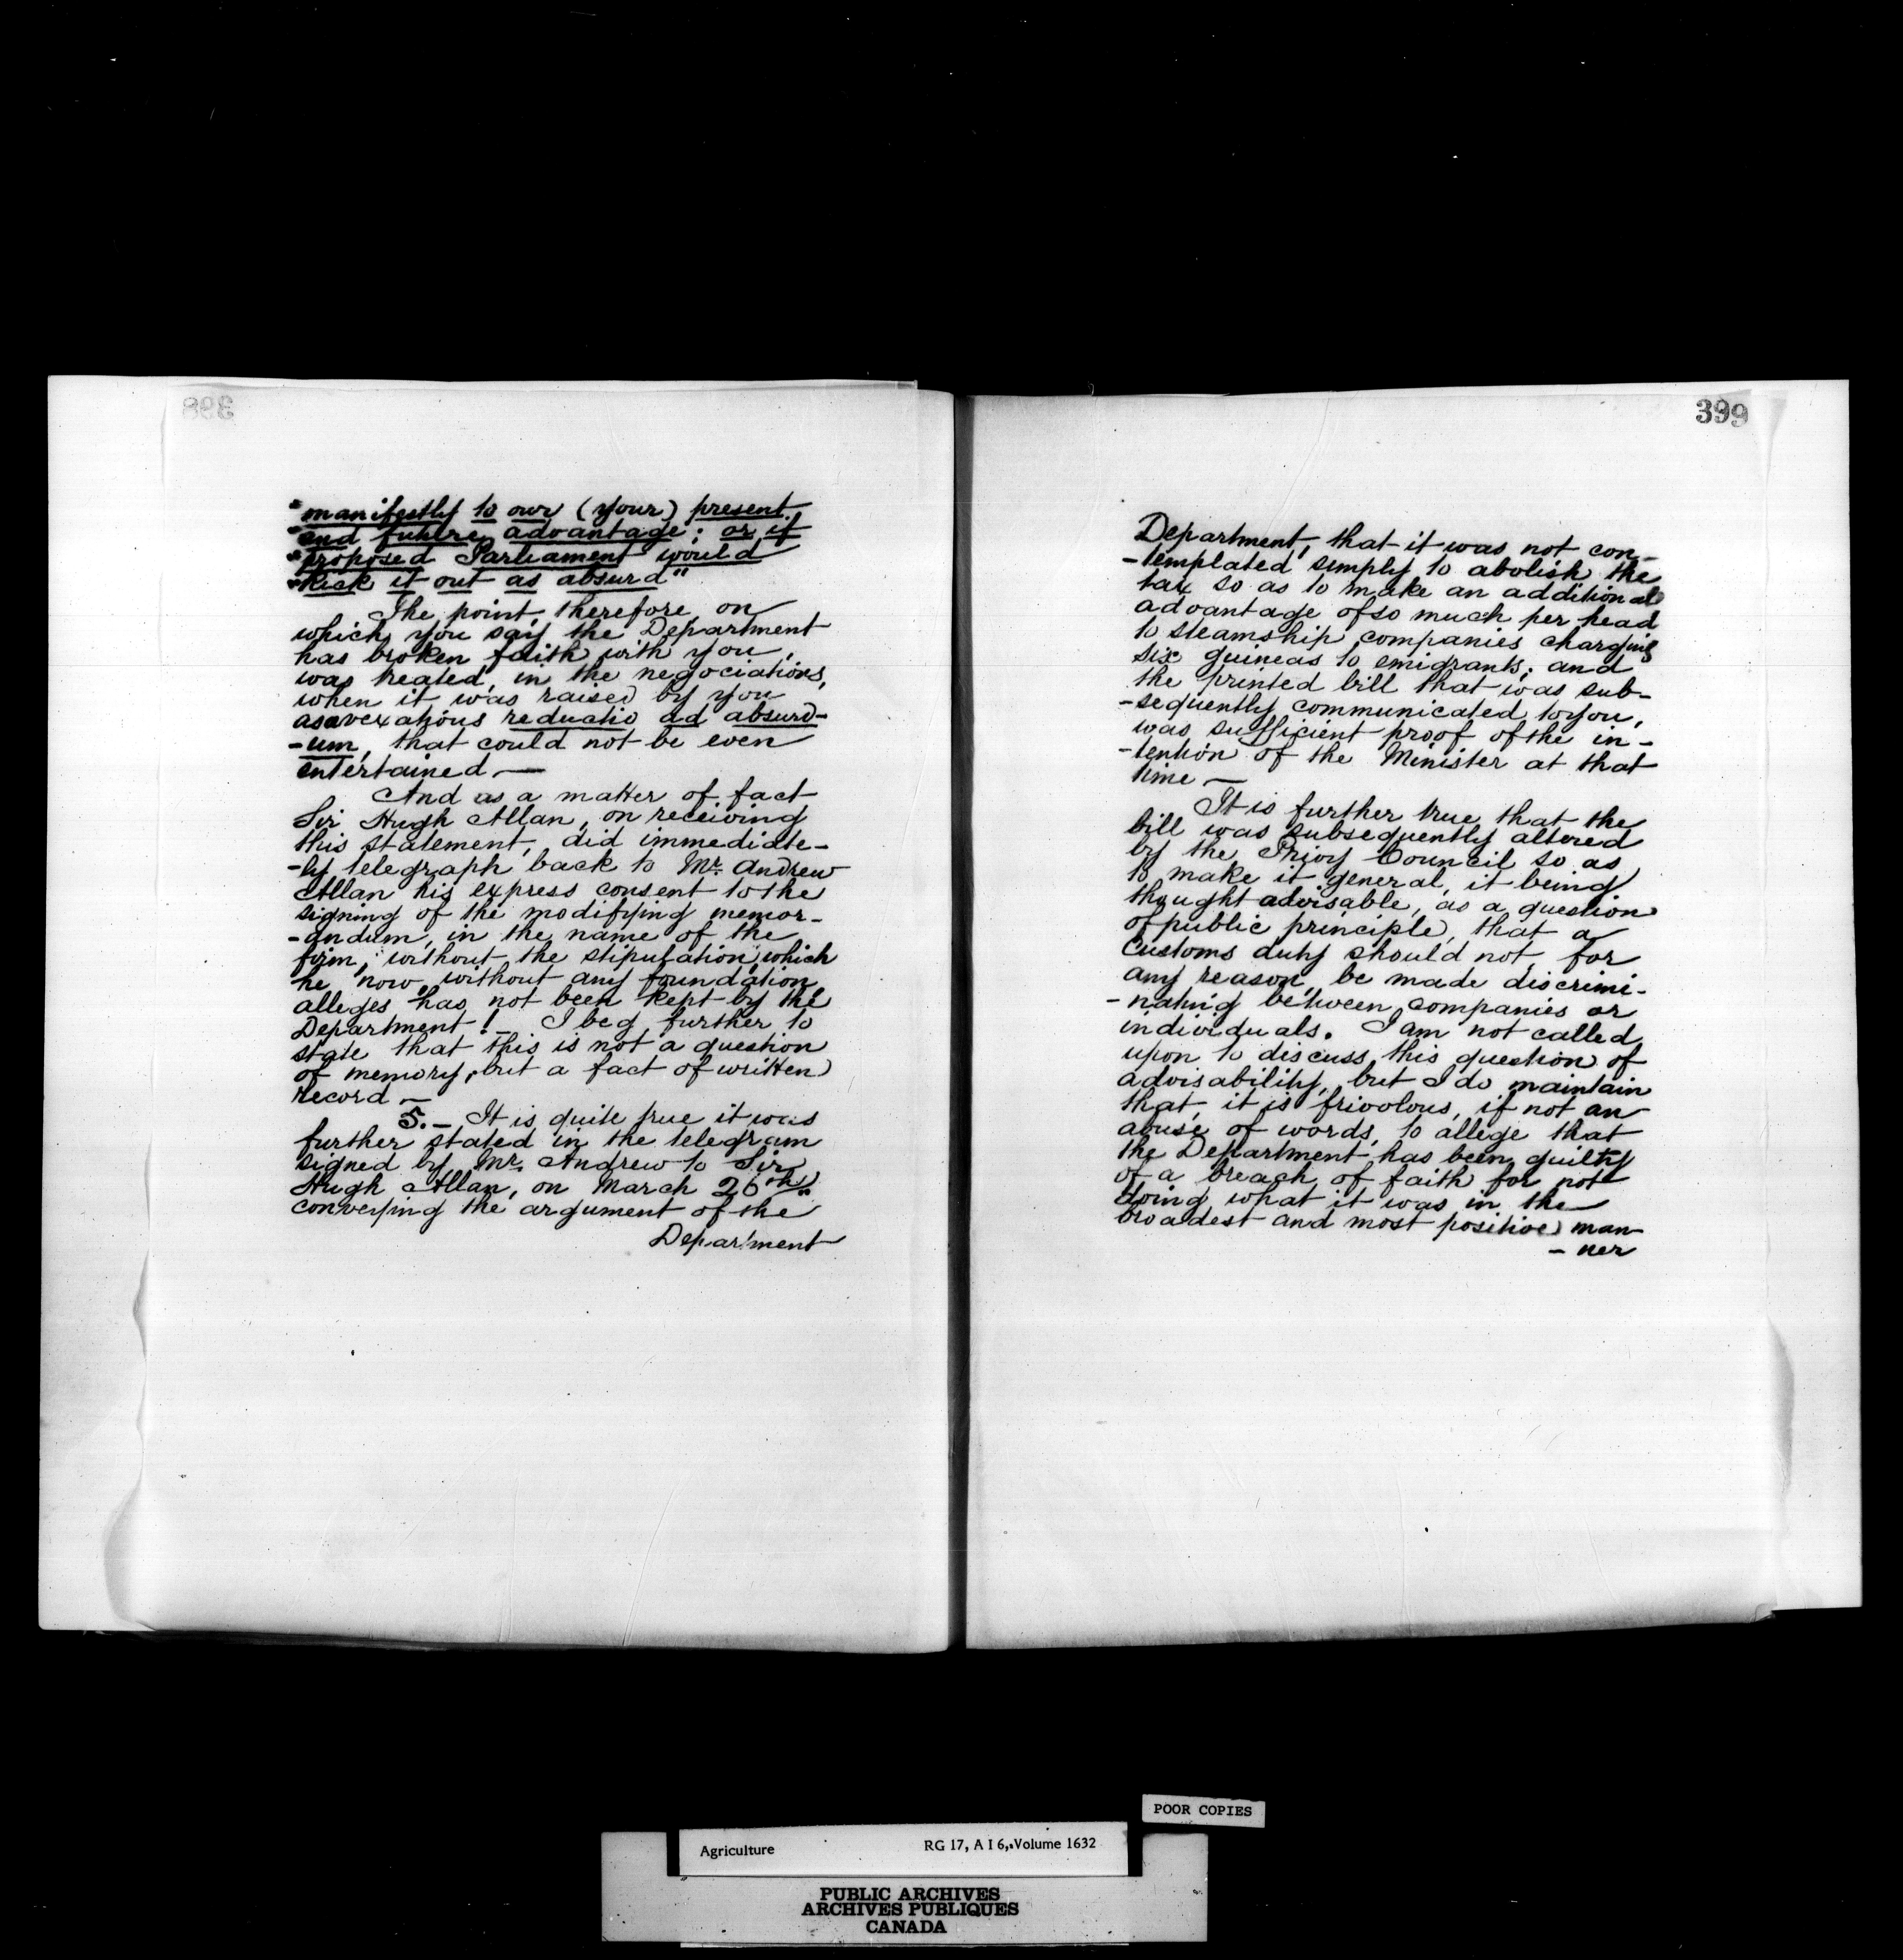 398
"manifestly to our (your) present
"and future advantage; or if
"proposed Parliament would
"kick it out as absurd"
The point, therefore, on
which you say the Department
has broken faith with you,
was treated, in the negociations,
when it was raised by you
as a vexatious reductio ad absurd-
-um, that could not be even
entertained —
And as a matter of fact
Sir Hugh Allan, on receiving
this statement, did immediate-
-ly telegraph back to Mr. Andrew
Allan his express consent to the
signing of the modifying memor-
-andum, in the name of the
firm, without the stipulation, which
he now, without any foundation,
alleges has not been kept by the
Department! — I beg further to
state that this is not a question
of memory, but a fact of written
record —
5. — It is quite true it was
further stated in the telegram
signed by Mr. Andrew to Sir
Hugh Allan, on March 26th,
conveying the argument of the
Department
399
Department, that it was not con-
-templated simply to abolish the
tax so as to make an additional
advantage of so much per head
to steamship companies charging
six guineas to emigrants; and
the printed bill that was sub-
-sequently communicated to you,
was sufficient proof of the in-
-tention of the Minister at that
time —
It is further true that the
bill was subsequently altered
by the Privy Council so as
to make it general, it being
thought advisable, as a question
of public principle, that a
customs duty should not, for
any reason, be made discrimi-
-nating between companies or
individuals. I am not called
upon to discuss this question of
advisability, but I do maintain
that, it is frivolous, if not an
abuse of words, to allege that
the Department has been guilty
of a breach of faith for not
doing what it was in the
broadest and most positive man-
-ner
POOR COPIES
Agriculture RG 17, A I 6, Volume 1632
PUBLIC ARCHIVES
ARCHIVES PUBLIQUES
CANADA